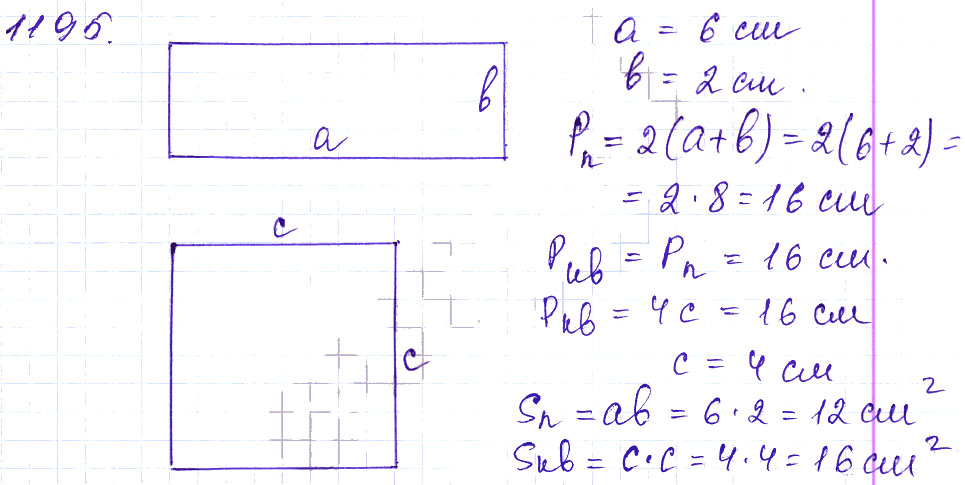 1195.
a
b
a = 6 см
b = 2 см.
Pп = 2(a+b) = 2(6+2) =
= 2·8 = 16 см
c
c
Pкв = Pп = 16 см.
Pкв = 4c = 16 см
c = 4 см
Sп = ab = 6·2 = 12 см²
Sкв = c·c = 4·4 = 16 см²